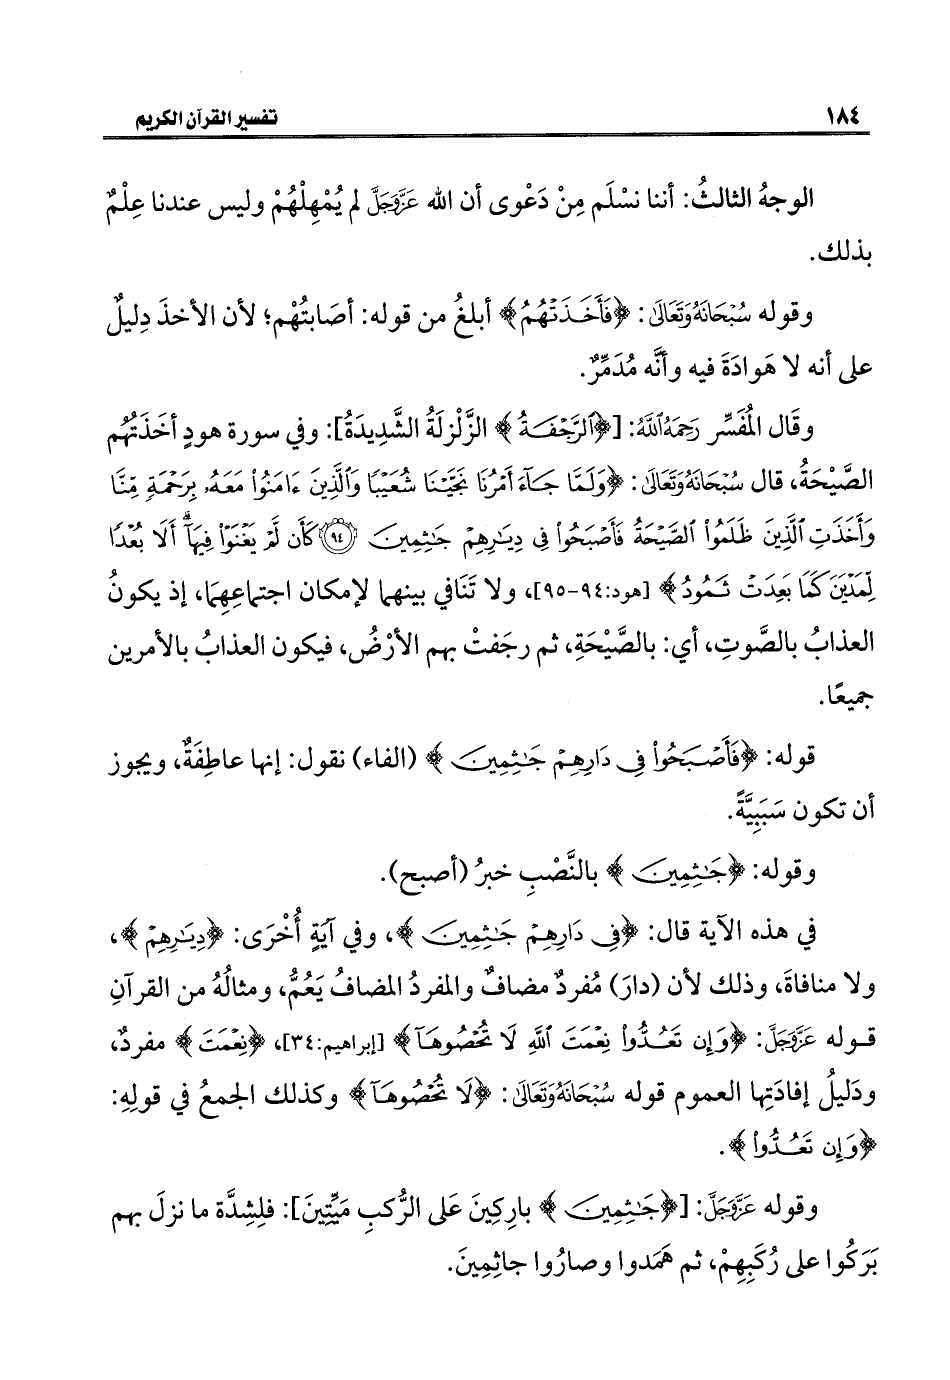 ١٨٤ تفسير القرآن الكريم
الوجهُ الثالثُ: أننا نسْلَم مِنْ دَعْوى أن الله عَزَّوَجَلَّ لم يُمْهِلْهُمْ وليس عندنا عِلْمٌ
بذلك.
وقوله سُبْحَانَهُ وَتَعَالَى: ﴿فَأَخَذَتْهُمُ﴾ أبلغُ من قوله: أصَابتْهُم؛ لأن الأخذَ دِليلٌ
على أنه لا هَوادَةَ فيه وأنَّه مُدَمِّرٌ.
وقَال المُفَسِّر رَحِمَهُ اللَّهُ: [﴿الرَّجْفَةُ﴾ الزَّلْزلَةُ الشَّدِيدَةُ]: وفي سورة هودٍ أخَذَتْهُم
الصَّيْحَةُ، قال سُبْحَانَهُ وَتَعَالَى: ﴿وَلَمَّا جَآءَ أَمْرُنَا نَجَّيْنَا شُعَيْبًا وَٱلَّذِينَ ءَامَنُواْ مَعَهُۥ بِرَحْمَةٍ مِّنَّا
وَأَخَذَتِ ٱلَّذِينَ ظَلَمُواْ ٱلصَّيْحَةُ فَأَصْبَحُواْ فِى دِيَٰرِهِمْ جَٰثِمِينَ ٩٤ كَأَن لَّمْ يَغْنَوْاْ فِيهَآ ۗ أَلَا بُعْدًا
لِّمَدْيَنَ كَمَا بَعِدَتْ ثَمُودُ﴾ [هود:٩٤-٩٥]، ولا تَنَافي بينهما لإمكان اجتماعِهِمَا، إذ يكونُ
العذابُ بالصَّوتِ، أي: بالصَّيْحَةِ، ثم رجَفتْ بهم الأرْضُ، فيكون العذابُ بالأمرين
جميعًا.
قوله: ﴿فَأَصْبَحُواْ فِى دَارِهِمْ جَٰثِمِينَ﴾ (الفاء) نقول: إنها عاطِفَةٌ، ويجوز
أن تكون سَبَبِيَّةً.
وقوله: ﴿جَٰثِمِينَ﴾ بالنَّصْبِ خبرُ (أصبح).
في هذه الآية قال: ﴿فِى دَارِهِمْ جَٰثِمِينَ﴾، وفي آيَةٍ أُخْرَى: ﴿دِيَٰرِهِمْ﴾،
ولا منافاةَ، وذلك لأن (دارَ) مُفردٌ مضافٌ والمفردُ المضافُ يَعُمُّ، ومثالُهُ من القرآنِ
قوله عَزَّوَجَلَّ: ﴿وَإِن تَعُدُّواْ نِعْمَتَ ٱللَّهِ لَا تُحْصُوهَآ﴾ [إبراهيم:٣٤]، ﴿نِعْمَتَ﴾ مفردٌ،
ودَليلُ إفادَتِها العموم قوله سُبْحَانَهُ وَتَعَالَى: ﴿لَا تُحْصُوهَآ﴾ وكذلك الجمعُ في قولِهِ:
﴿وَإِن تَعُدُّواْ﴾.
وقوله عَزَّوَجَلَّ: [﴿جَٰثِمِينَ﴾ بارِكِينَ عَلى الرُّكبِ مَيِّتِينَ]: فلِشِدَّة ما نزلَ بهم
بَرَكُوا على رُكَبِهِمْ، ثم هَمَدوا وصارُوا جاثِمِينَ.